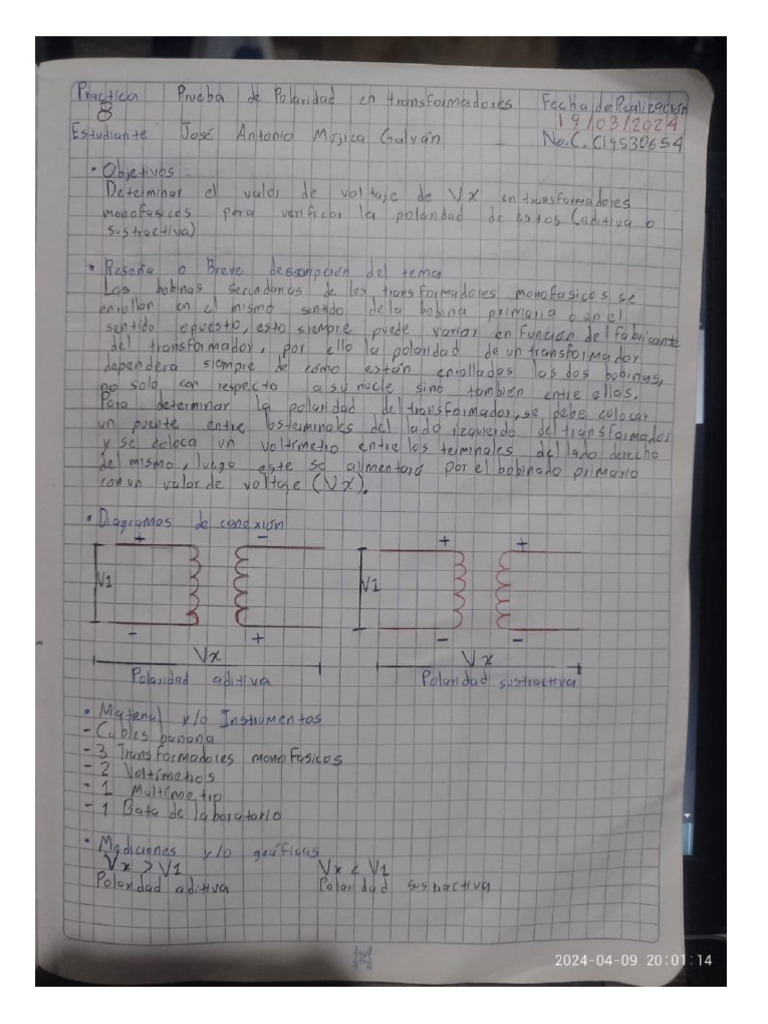 Practica 8 Prueba de Polaridad en transformadores Fecha de Realización
19/03/2024
Estudiante José Antonio Mujica Galván No.C. C19530654
• Objetivos
Determinar el valor de voltaje de Vx en transformadores
monofasicos para verificar la polaridad de estos (aditiva o
sustractiva)
• Reseña o Breve descripción del tema
Las bobinas secundarias de los transformadores monofasicos se
enrollan en el mismo sentido de la bobina primaria o en el
sentido opuesto, esto siempre puede variar en función del fabricante
del transformador, por ello la polaridad de un transformador
dependera siempre de cómo están enrollados las dos bobinas,
no solo con respecto a su nucle sino tambien entre ellas.
Para determinar la polaridad del transformador, se debe colocar
un puente entre los terminales del lado izquierdo del transformador
y se coloca un voltimetro entre los terminales del lado derecho
del mismo, luego este se alimentará por el bobinado primario
con un valor de voltaje (Vx).
• Diagramas de conexión
+ - + +
V1 V1
- + - -
Vx Vx
Polaridad aditiva Polaridad sustractiva
• Material y/o Instrumentos
- Cables banana
- 3 Transformadores monofasicos
- 2 Voltímetros
- 1 Multímetro
- 1 Bata de laboratorio
• Mediciones y/o gráficas
Vx > V1 Vx < V1
Polaridad aditiva Polaridad sustractiva
2024-04-09 20:01:14